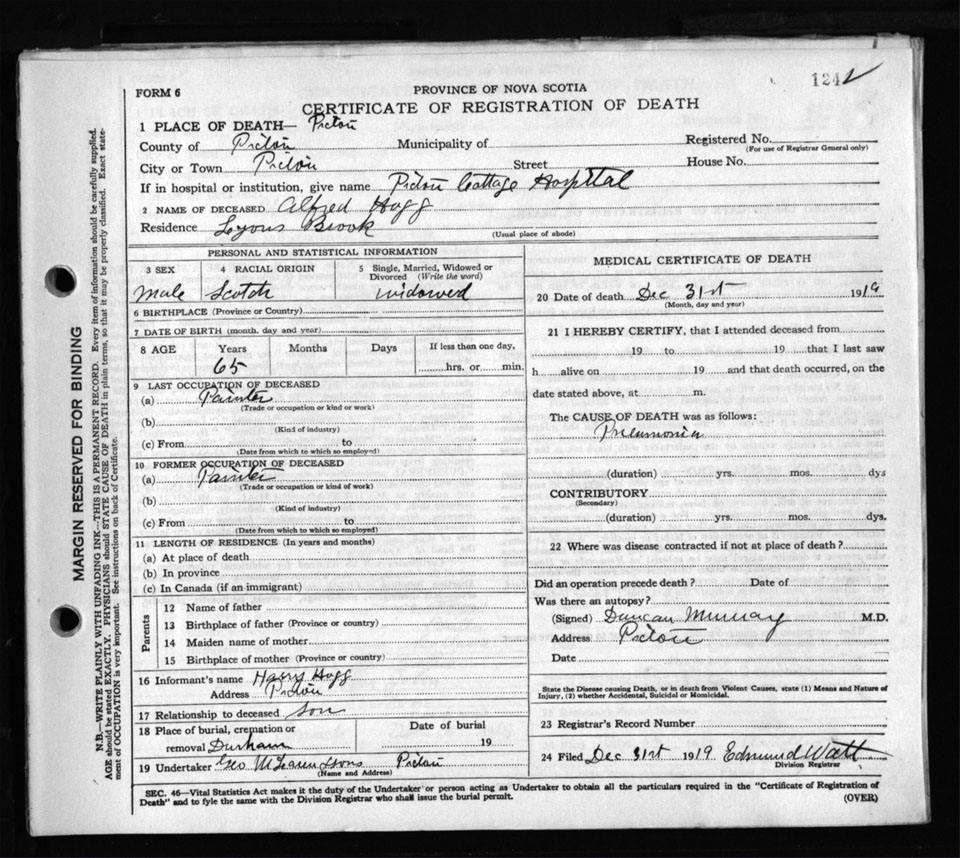 1242
FORM 6
PROVINCE OF NOVA SCOTIA
CERTIFICATE OF REGISTRATION OF DEATH
1 PLACE OF DEATH— Pictou
County of Pictou Municipality of Registered No.
(For use of Registrar General only)
City or Town Pictou Street House No.
If in hospital or institution, give name Pictou Cottage Hospital
2 NAME OF DECEASED Alfred Hogg
Residence Lyons Brook
(Usual place of abode)
PERSONAL AND STATISTICAL INFORMATION
3 SEX 4 RACIAL ORIGIN 5 Single, Married, Widowed or Divorced (Write the word)
Male Scotch widowed
6 BIRTHPLACE (Province or Country)
7 DATE OF BIRTH (month, day and year)
8 AGE Years Months Days If less than one day,
65 hrs. or min.
9 LAST OCCUPATION OF DECEASED
(a) Painter
(Trade or occupation or kind or work)
(b)
(Kind of industry)
(c) From to
(Date from which to which so employed)
10 FORMER OCCUPATION OF DECEASED
(a) Painter
(Trade or occupation or kind of work)
(b)
(Kind of industry)
(c) From to
(Date from which to which so employed)
11 LENGTH OF RESIDENCE (In years and months)
(a) At place of death
(b) In province
(c) In Canada (if an immigrant)
Parents
12 Name of father
13 Birthplace of father (Province or country)
14 Maiden name of mother
15 Birthplace of mother (Province or country)
16 Informant's name Harry Hogg
Address Pictou
17 Relationship to deceased Son
18 Place of burial, cremation or removal Durham Date of burial 19
19 Undertaker Geo McLearn & Sons Pictou
(Name and Address)
MEDICAL CERTIFICATE OF DEATH
20 Date of death Dec 31st 1919
(Month, day and year)
21 I HEREBY CERTIFY, that I attended deceased from
19 to 19 that I last saw
h alive on 19 and that death occurred, on the
date stated above, at m.
The CAUSE OF DEATH was as follows:
Pneumonia
(duration) yrs. mos. dys
CONTRIBUTORY
(Secondary)
(duration) yrs. mos. dys.
22 Where was disease contracted if not at place of death?
Did an operation precede death? Date of
Was there an autopsy?
(Signed) Duncan Murray M.D.
Address Pictou
Date
State the Disease causing Death, or in death from Violent Causes, state (1) Means and Nature of
Injury, (2) whether Accidental, Suicidal or Homicidal.
23 Registrar's Record Number
24 Filed Dec 31st 1919 Edmund Watt
Division Registrar
SEC. 46—Vital Statistics Act makes it the duty of the Undertaker or person acting as Undertaker to obtain all the particulars required in the "Certificate of Registration of
Death" and to fyle the same with the Division Registrar who shall issue the burial permit.
(OVER)
MARGIN RESERVED FOR BINDING
N.B.—WRITE PLAINLY WITH UNFADING INK—THIS IS A PERMANENT RECORD. Every item of information should be carefully supplied.
AGE should be stated EXACTLY. PHYSICIANS should STATE CAUSE OF DEATH in plain terms, so that it may be properly classified. Exact state-
ment of OCCUPATION is very important. See instructions on back of Certificate.